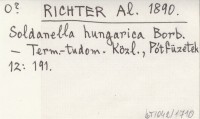 O? RICHTER Al. 1890.
Soldanella hungarica Borb.
— Term.-tudom. Közl., Pótfüzetek
12: 191.